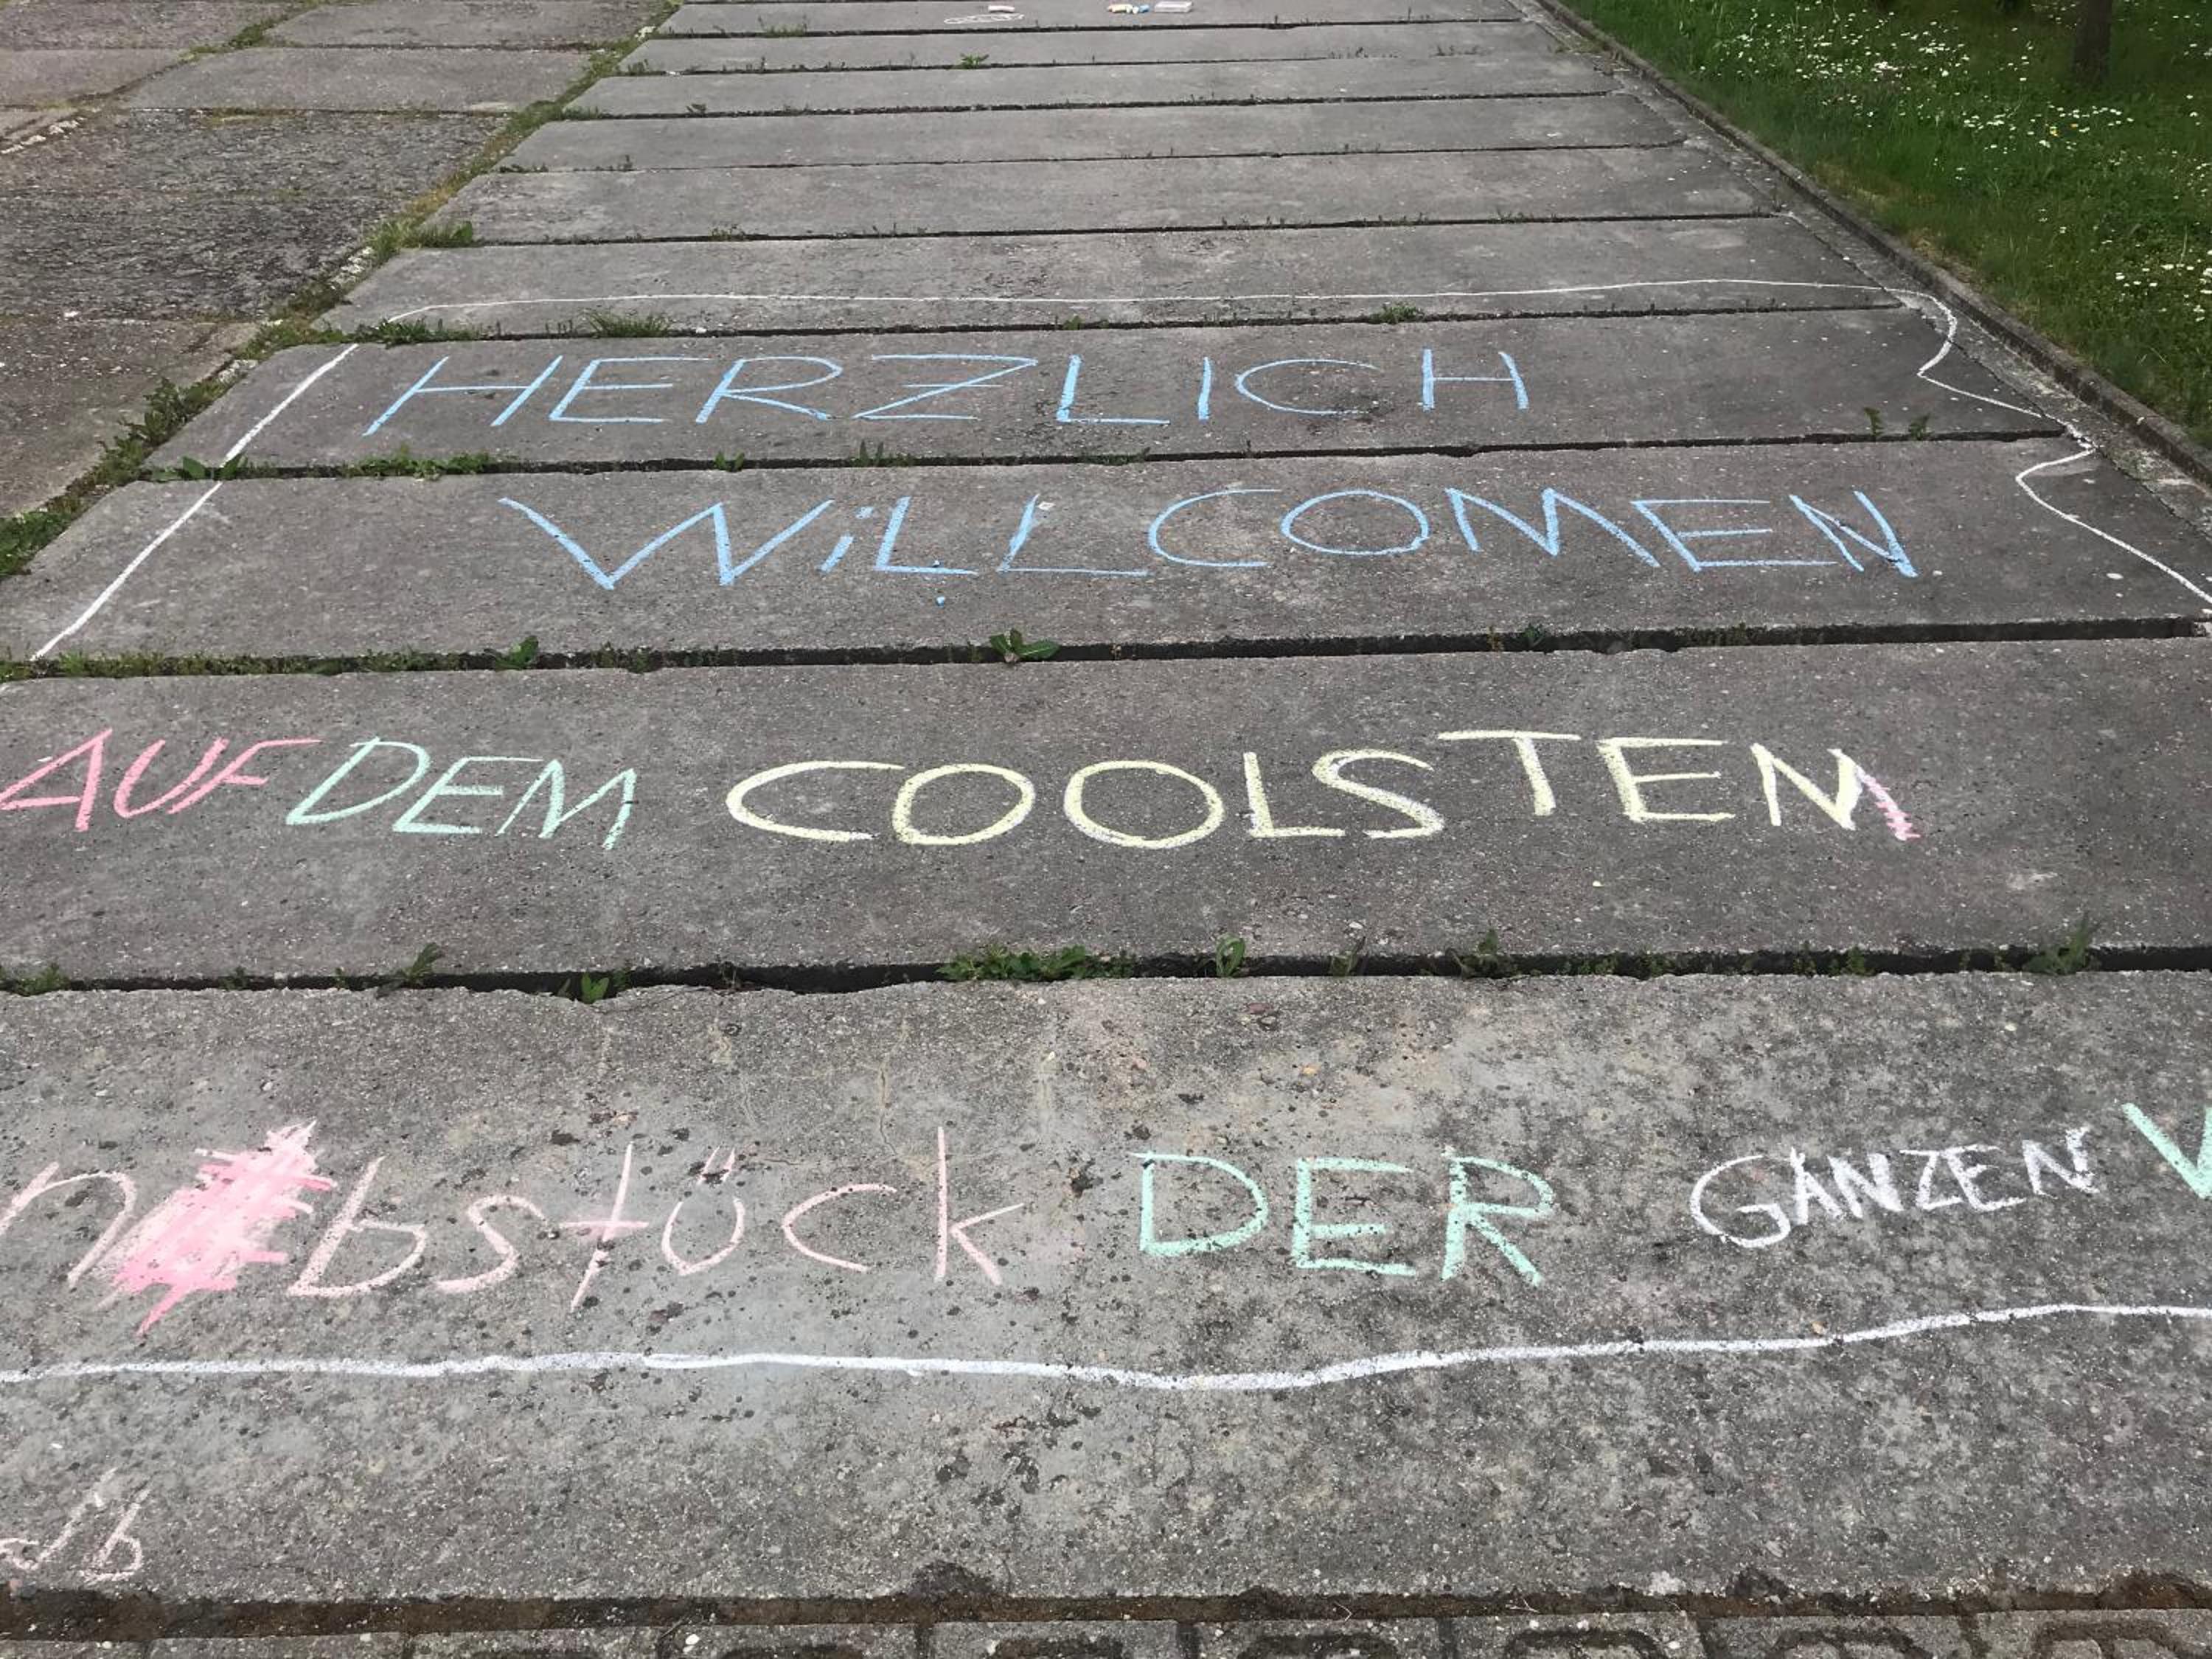 HERZLICH
WiLLCOMEN
AUF DEM COOLSTEN
bstück DER GANZEN